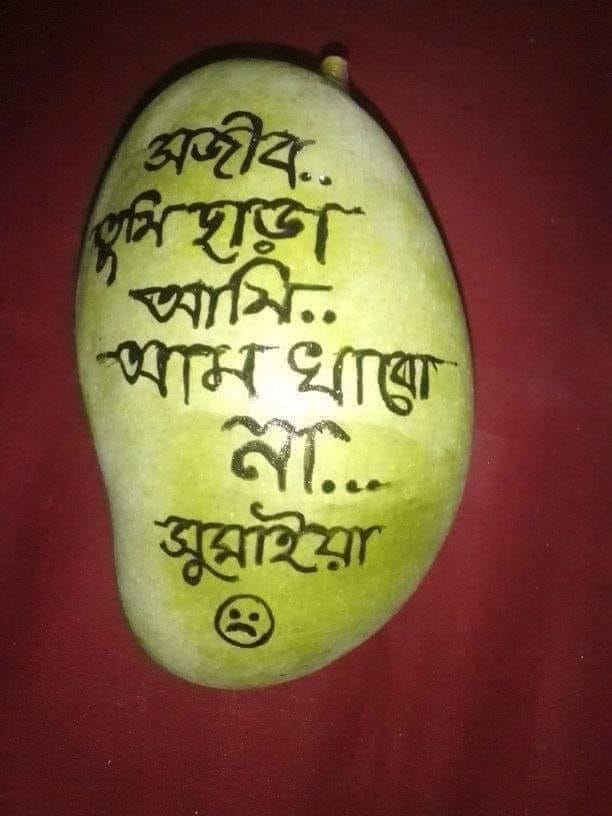 সজীব..
তুমি ছাড়া
আমি..
আম খাবো
না...
সুমাইয়া